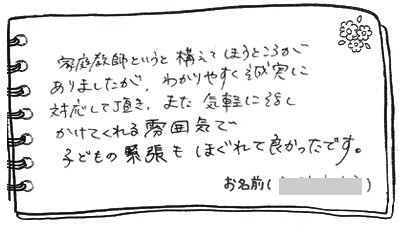 家庭教師というと構えてしまうところが
ありましたが、わかりやすく誠実に
対応して頂き、また気軽に話し
かけてくれる雰囲気で
子どもの緊張もほぐれて良かったです。
お名前( )